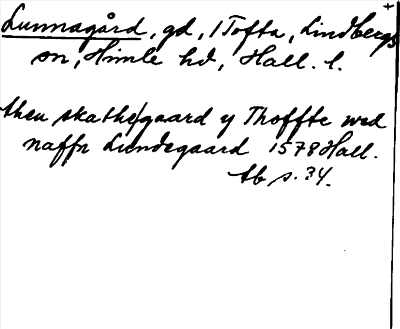 Lunnagård, gd, i Tofta, Lindbergs
sn, Himle hd, Hall. l.
then skathegaard y Thoffte wed
naffn Lundegaard 1578 Hall.
tb s. 34.